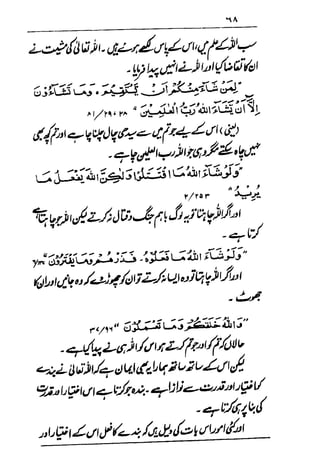 ۶۸
سب اللہ کے علم میں، اس کے پاس لکھے ہوئے ہیں۔ اللہ تعالیٰ کی مشیت نے
ان کا تقاضا کیا اور اللہ نے انہیں پیدا فرمایا۔
"لِمَنْ شَاءَ مِنْكُمْ اَنْ يَّسْتَقِيْمَ ، وَمَا تَشَاءُوْنَ
اِلَّا اَنْ يَّشَاءَ اللهُ رَبُّ الْعٰلَمِيْنَ" ۲۸،۲۹/۸۱
(یعنی) اس کے لیے جو تم میں سے سیدھی چال چلنا چاہے اور تم کچھ بھی
نہیں چاہ سکتے مگر وہی جو اللہ رب العلمین چاہے۔
"وَلَوْ شَاءَ اللهُ مَا اقْتَتَلُوْا وَلٰكِنَّ اللهَ يَفْعَلُ مَا
يُرِيْدُ" ۲/۲۵۳
اور اگر اللہ چاہتا تو یہ لوگ باہم جنگ و قتال نہ کرتے لیکن اللہ جو چاہتا ہے
کرتا ہے۔
"وَلَوْ شَاءَ اللهُ مَا فَعَلُوْهُ، فَذَرْهُمْ وَمَا يَفْتَرُوْنَ"
اور اگر اللہ چاہتا تو وہ ایسا نہ کرتے تو ان کو چھوڑئے کہ وہ جانیں اور ان کا
جھوٹ۔
"وَاللهُ خَلَقَكُمْ وَمَا تَعْمَلُوْنَ" ۳۷/۹۶
حالاں کہ تم کو اور جو تم کرتے ہو اس کو اللہ ہی نے پیدا کیا ہے۔
لیکن اس کے ساتھ ساتھ ہمارا یہ بھی ایمان ہے کہ اللہ تعالیٰ نے بندے
کو اختیار اور قدرت سے نوازا ہے۔ بندہ جو کرتا ہے اس اختیار اور قدرت
کی بنا پر ہی کرتا ہے۔
اور کئی امور اس بات کی دلیل ہیں کہ بندے کا فعل اس کے اختیار اور